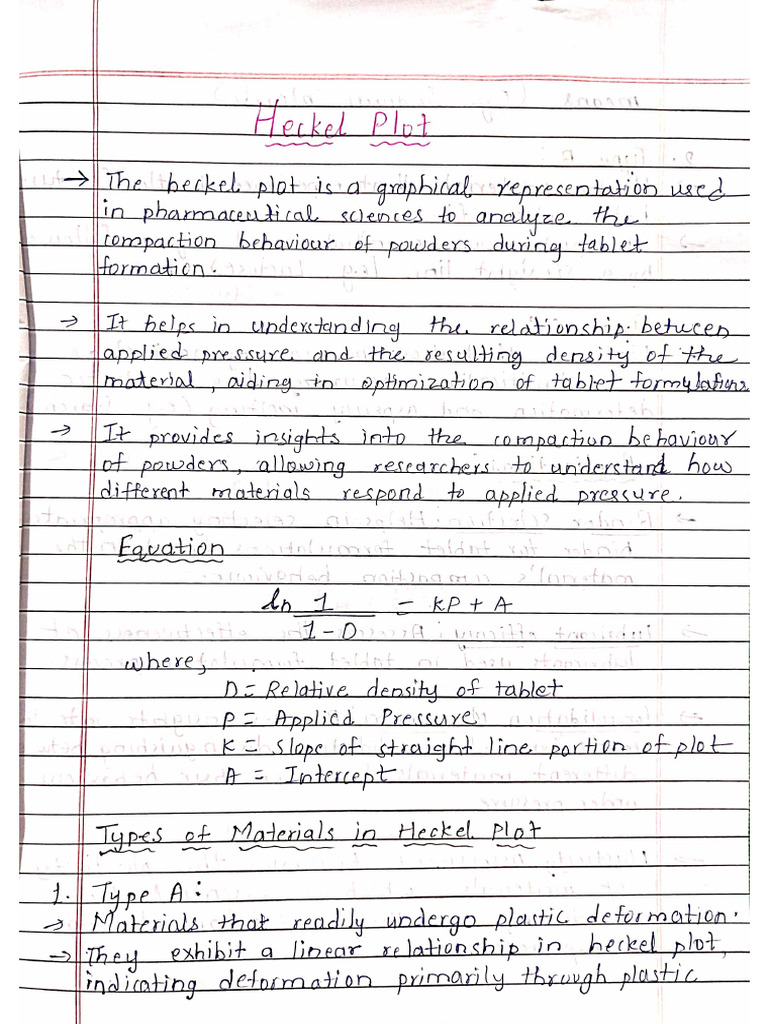 Heckel Plot
→ The heckel plot is a graphical representation used
in pharmaceutical sciences to analyze the
compaction behaviour of powders during tablet
formation.
→ It helps in understanding the relationship between
applied pressure and the resulting density of the
material, aiding in optimization of tablet formulations.
→ It provides insights into the compaction behaviour
of powders, allowing researchers to understand how
different materials respond to applied pressure.
Equation
ln 1 = KP + A
1 - D
where,
D = Relative density of tablet
P = Applied Pressure
K = Slope of straight line portion of plot
A = Intercept
Types of Materials in Heckel Plot
1. Type A:
→ Materials that readily undergo plastic deformation.
→ They exhibit a linear relationship in heckel plot,
indicating deformation primarily through plastic